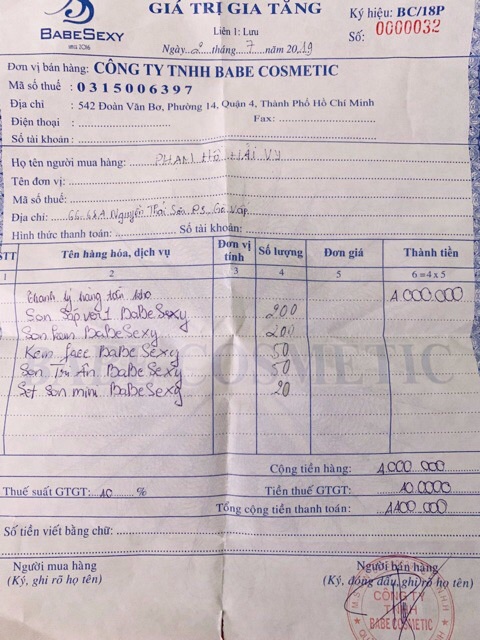 GIÁ TRỊ GIA TĂNG
BABESEXY
since 2016
Liên 1: Lưu
Ngày 2 tháng 7 năm 2019
Ký hiệu: BC/18P
Số: 0000032
Đơn vị bán hàng: CÔNG TY TNHH BABE COSMETIC
Mã số thuế : 0315006397
Địa chỉ : 542 Đoàn Văn Bơ, Phường 14, Quận 4, Thành Phố Hồ Chí Minh
Điện thoại : Fax:
Số tài khoản:
Họ tên người mua hàng: PHẠM HỒ HẢI VY
Tên đơn vị:
Mã số thuế:
Địa chỉ: Nguyễn Thái Sơn P5 Gò Vấp
Hình thức thanh toán: Số tài khoản:
STT Tên hàng hóa, dịch vụ Đơn vị tính Số lượng Đơn giá Thành tiền
1 2 3 4 5 6 = 4 x 5
Thanh lý hàng tồn kho 1.000.000
Son Sáp ver1 BaBeSexy 200
Son kem BaBeSexy 200
Kem face BaBe Sexy 50
Son Tri Ân BaBeSexy 50
Set Son mini BaBeSexy 20
BABE COSMETIC
Cộng tiền hàng: 1.000.000
Thuế suất GTGT: 10 % Tiền thuế GTGT: 10.0000
Tổng cộng tiền thanh toán: 1100.000
Số tiền viết bằng chữ:
Người mua hàng Người bán hàng
(Ký, ghi rõ họ tên) (Ký, đóng dấu, ghi rõ họ tên)
CÔNG TY
TNHH
BABE COSMETIC